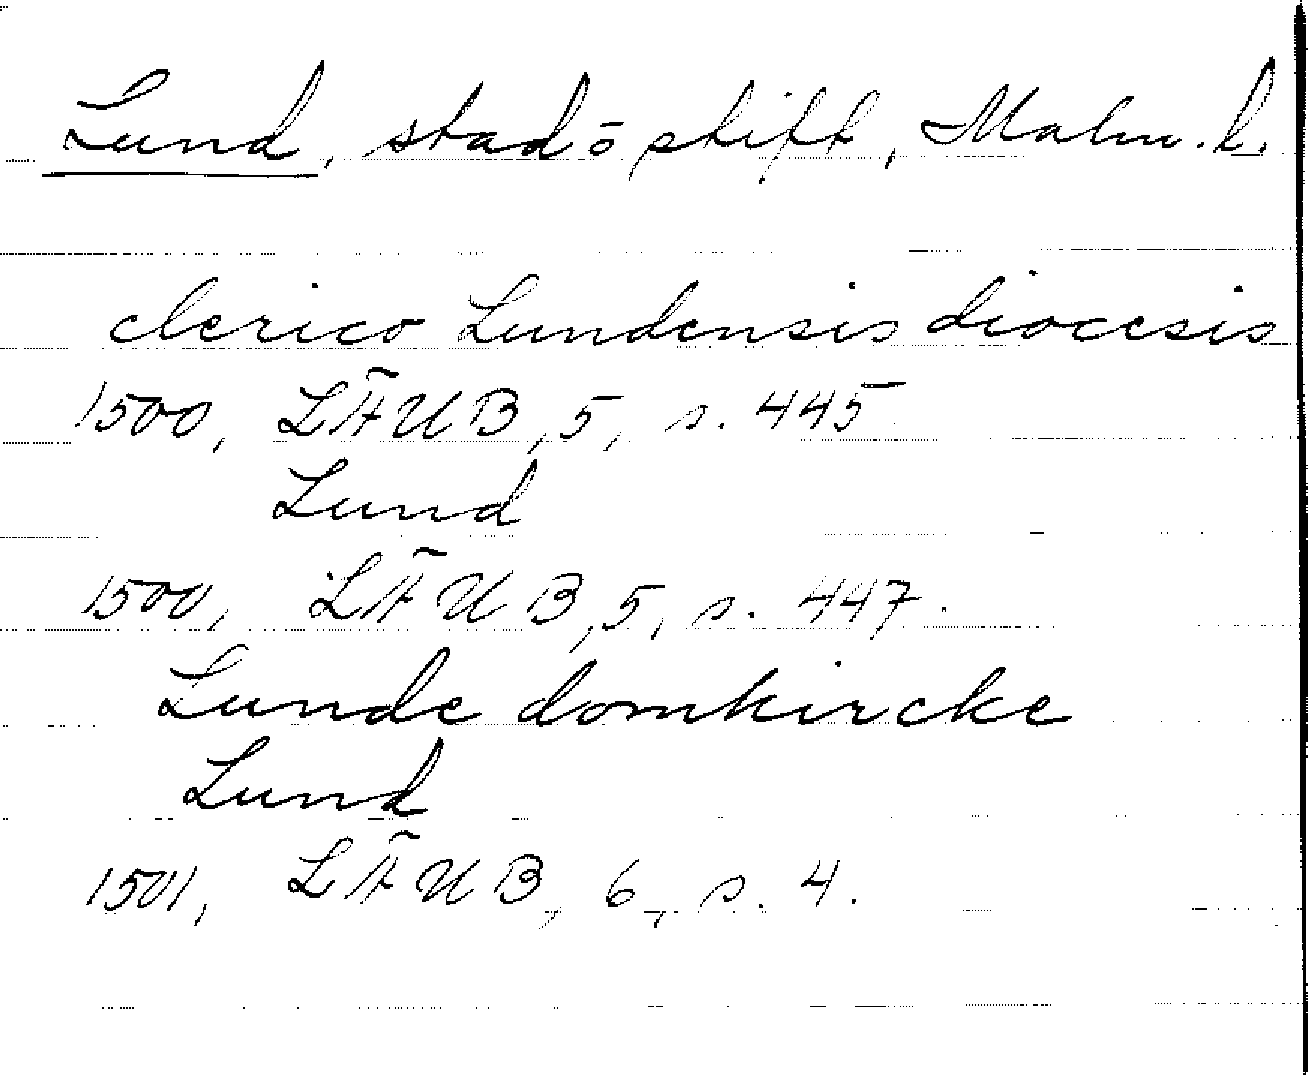 Lund, stad o stift, Malm. l.
clerico Lundensis diocesis
1500, LÄUB, 5, s. 445
Lund
1500, LÄUB, 5, s. 447.
Lunde domkircke
Lund
1501, LÄUB, 6, s. 4.